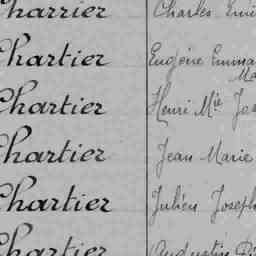 Charrier Charles Emi
Chartier Eugène Emma
Ma
Chartier Henri Mie Jos
Chartier Jean Marie
Chartier Julien Joseph
Chartier Augustin